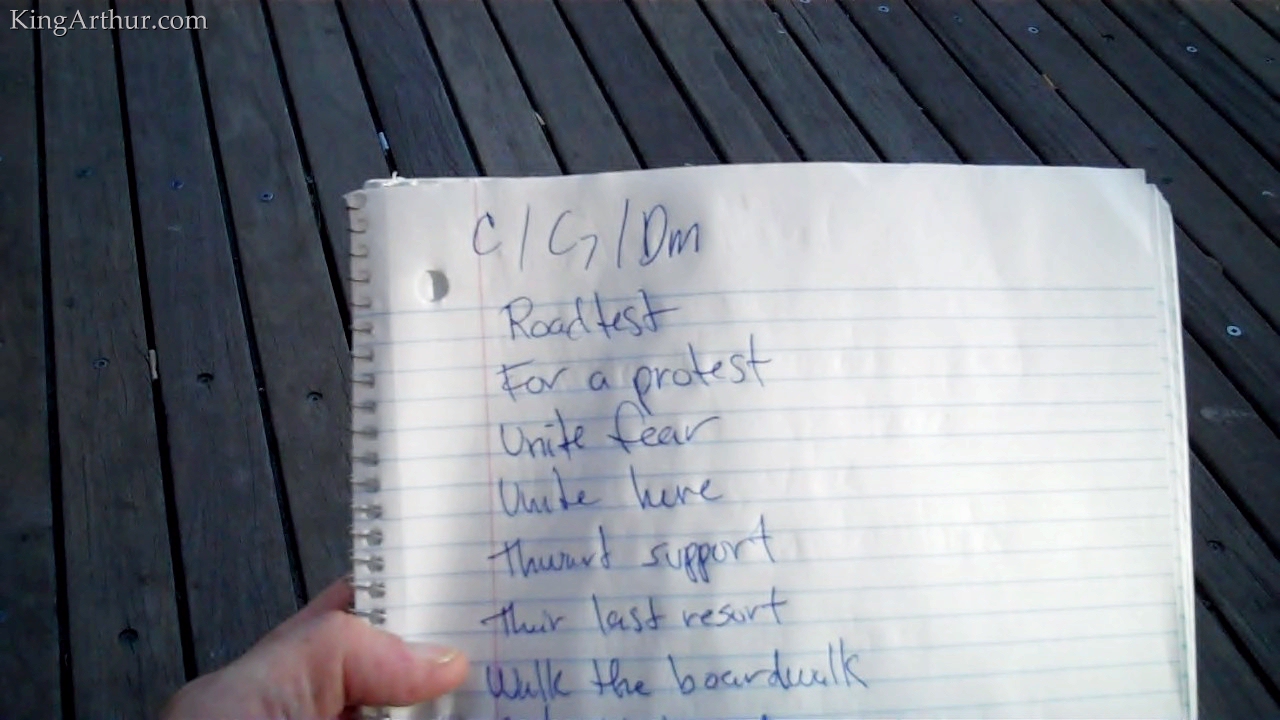 KingArthur.com
C / G / Dm
Roadtest
For a protest
Unite fear
Unite here
Thwart support
Their last resort
Walk the boardwalk